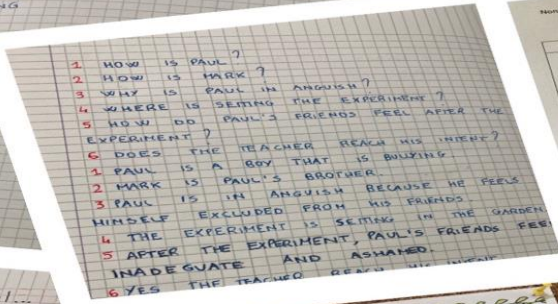 1 HOW IS PAUL?
2 HOW IS MARK?
3 WHY IS PAUL IN ANGUISH?
4 WHERE IS SEITING THE EXPERIMENT?
5 HOW DO PAUL'S FRIENDS FEEL AFTER THE
EXPERIMENT?
6 DOES THE TEACHER REACH HIS INTENT?
1 PAUL IS A BOY THAT IS BULLYING.
2 MARK IS PAUL'S BROTHER.
3 PAUL IS IN ANGUISH BECAUSE HE FEELS
HIMSELF EXCLUDED FROM HIS FRIENDS.
4 THE EXPERIMENT IS SEITING IN THE GARDEN
5 AFTER THE EXPERIMENT, PAUL'S FRIENDS FEEL
INADEGUATE AND ASHAMED.
6 YES THE TEACHER REACH HIS INTENT